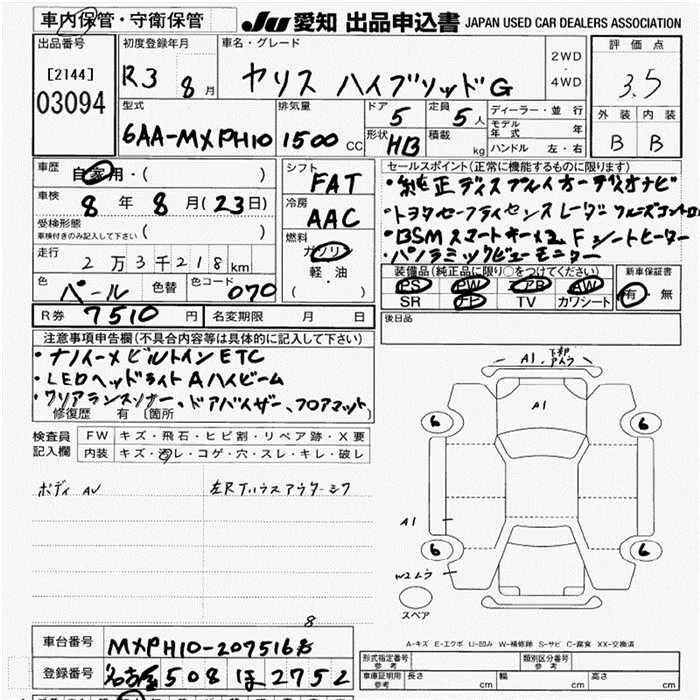 車内保管・守衛保管
JU 愛知 出品申込書 JAPAN USED CAR DEALERS ASSOCIATION
出品番号
[2144]
03094
初度登録年月
R3 8月
車名・グレード
ヤリス ハイブリッドG
2WD
・
4WD
評価点
3.5
外装 内装
B B
型式
6AA-MXPH10
排気量
1500 CC
ドア 5
形状 HB
定員 5人
積載 kg
ディーラー・並行
モデル年式 年
ハンドル 左・右
車歴
自家用・( )
車検
8年 8月(23日)
受検形態
車検付きのみ記入して下さい ( )
走行
2万3千218km
色 パール 色替 色コード 070
シフト
FAT
冷房
AAC
燃料
ガソリン
軽・油
( )
セールスポイント(正常に機能するものに限ります)
・純正ディスプレイオーディオナビ
・トヨタセーフティセンスレーダークルーズコントロ
・BSMスマートキーイ2、Fシートヒーター
・パノラミックビューモニター
装備品(純正品に限り○をつけてください)
PS PW エアB AW
SR ナビ TV カワシート
新車保証書
有・無
R券 7510円 名変期限 月 日
後日品
注意事項申告欄(不具合内容等は具体的に記入して下さい)
・ナノイーメビルトインETC
・LEDヘッドライトAハイビーム
・クリアランスソナー、ドアバイザー、フロアマット
修復歴 有〔箇所
検査員記入欄
FW キズ・飛石・ヒビ割・リペア跡・X要
内装 キズ・汚レ・コゲ・穴・スレ・キレ・破レ
ボディ AU
左Rトハウスアウターシワ
A1 下部アイウ
A1
6 6
A1
6 6
W2
スペア
A-キズ E-エクボ U-凹み W-補修跡 S-サビ C-腐食 XX-交換済
車台番号 MXPH10-2075168
8
登録番号 名古屋 508 ほ 2752
形式指定番号
参考
類別区分番号
参考
車庫証明用
参考
長さ cm 幅 cm 高さ cm